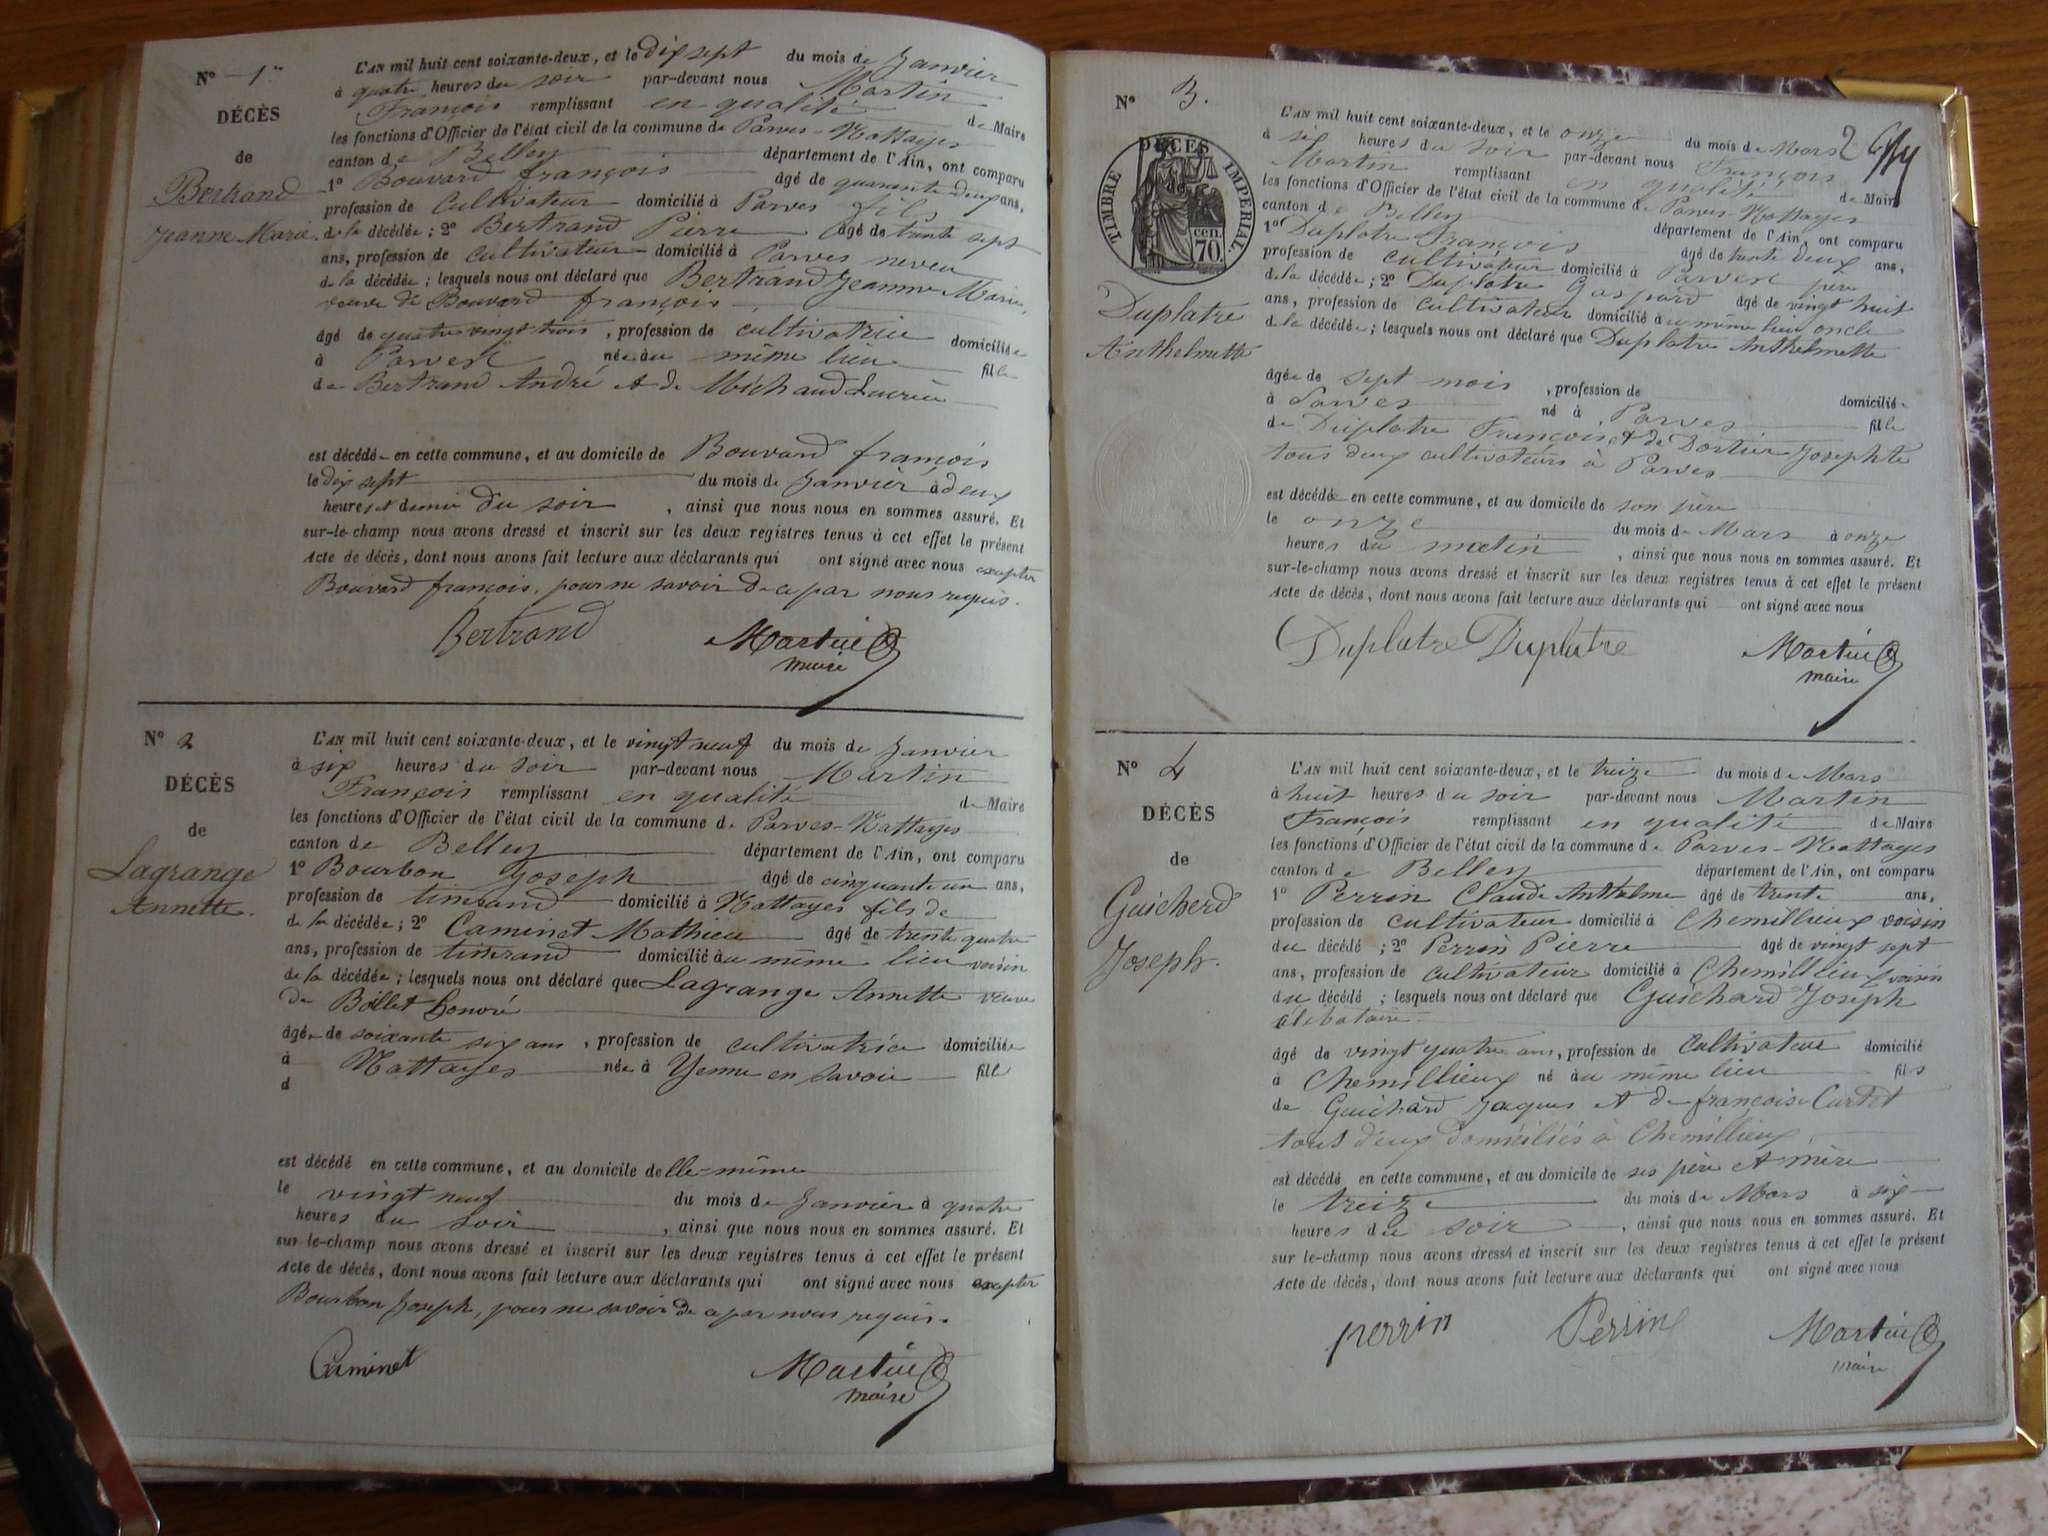 N° 1er
DÉCÈS
de
Bertrand
Jeanne Marie.
L'AN mil huit cent soixante-deux, et le dix sept du mois de Janvier
à quatre heures du soir par-devant nous Martin
François remplissant en qualité de Maire
les fonctions d'Officier de l'état civil de la commune de Parves-Nattages
canton de Belley département de l'Ain, ont comparu
1° Bouvard françois âgé de quarante deux ans,
profession de Cultivateur domicilié à Parves fils
de la décédée ; 2° Bertrand Pierre âgé de trente sept
ans, profession de cultivateur domicilié à Parves neveu
de la décédée ; lesquels nous ont déclaré que Bertrand Jeanne Marie,
veuve de Bouvard françois
âgé de quatre vingt trois , profession de cultivatrice domiciliée
à Parves née au même lieu fille
de Bertrand André et de Michaud
est décédée en cette commune, et au domicile de Bouvard françois
le dix sept du mois de Janvier à deux
heures et demie du soir , ainsi que nous nous en sommes assuré. Et
sur-le-champ nous avons dressé et inscrit sur les deux registres tenus à cet effet le présent
Acte de décès, dont nous avons fait lecture aux déclarants qui ont signé avec nous excepter
Bouvard françois, pour ne savoir de ce par nous requis.
Bertrand Martin
maire
N° 2
DÉCÈS
de
Lagrange
Annette.
L'AN mil huit cent soixante-deux, et le vingt neuf du mois de Janvier
à six heures du soir par-devant nous Martin
François remplissant en qualité de Maire
les fonctions d'Officier de l'état civil de la commune de Parves-Nattages
canton de Belley département de l'Ain, ont comparu
1° Bourbon Joseph âgé de cinquante un ans,
profession de tisserand domicilié à Nattages fils de
de la décédée ; 2° Caminet Mathieu âgé de trente quatre
ans, profession de tisserand domicilié au même lieu voisin
de la décédée ; lesquels nous ont déclaré que Lagrange Annette veuve
de Billet honoré
âgée de soixante six ans , profession de cultivatrice domiciliée
à Nattages née à Yenne en Savoie fille
d
est décédé en cette commune, et au domicile d'elle-même
le vingt neuf du mois de Janvier à quatre
heures du soir , ainsi que nous nous en sommes assuré. Et
sur-le-champ nous avons dressé et inscrit sur les deux registres tenus à cet effet le présent
Acte de décès, dont nous avons fait lecture aux déclarants qui ont signé avec nous excepter
Bourbon Joseph, pour ne savoir de ce par nous requis.
Caminet Martin
maire
N° 3.
DÉCÈS
TIMBRE IMPÉRIAL.
cen.
70.
Duplatre
Anthelmette
2
L'AN mil huit cent soixante-deux, et le onze du mois de Mars
à six heures du soir par-devant nous François
Martin remplissant en qualité de Maire
les fonctions d'Officier de l'état civil de la commune de Parves-Nattages
canton de Belley département de l'Ain, ont comparu
1° Duplatre François âgé de trente deux ans,
profession de cultivateur domicilié à Parves père
de la décédée ; 2° Duplatre Gaspard âgé de vingt huit
ans, profession de cultivateur domicilié au même lieu oncle
de la décédée ; lesquels nous ont déclaré que Duplatre Anthelmette
âgée de sept mois , profession de domiciliée
à Parves né à Parves fille
de Duplatre François et de Dortier Josephte
tous deux cultivateurs à Parves
est décédée en cette commune, et au domicile de son père
le onze du mois de Mars à onze
heures du matin , ainsi que nous nous en sommes assuré. Et
sur-le-champ nous avons dressé et inscrit sur les deux registres tenus à cet effet le présent
Acte de décès, dont nous avons fait lecture aux déclarants qui ont signé avec nous
Duplatre Duplatre Martin
maire
N° 4
DÉCÈS
de
Guicherd
Joseph.
L'AN mil huit cent soixante-deux, et le treize du mois de Mars
à huit heures du soir par-devant nous Martin
François remplissant en qualité de Maire
les fonctions d'Officier de l'état civil de la commune de Parves-Nattages
canton de Belley département de l'Ain, ont comparu
1° Perrin Claude Anthelme âgé de trente ans,
profession de cultivateur domicilié à Chemillieux voisin
du décédé ; 2° Perrin Pierre âgé de vingt sept
ans, profession de cultivateur domicilié à Chemillieux voisin
du décédé ; lesquels nous ont déclaré que Guichard Joseph
célibataire
âgé de vingt quatre ans, profession de Cultivateur domicilié
à Chemillieux né au même lieu fils
de Guichard Jaques et de françoise Curtet
tous deux domiciliés à Chemillieux,
est décédé en cette commune, et au domicile de ses père et mère
le treize du mois de Mars à six
heures du soir , ainsi que nous nous en sommes assuré. Et
sur le-champ nous avons dressé et inscrit sur les deux registres tenus à cet effet le présent
Acte de décès, dont nous avons fait lecture aux déclarants qui ont signé avec nous
perrin Perrin Martin
maire